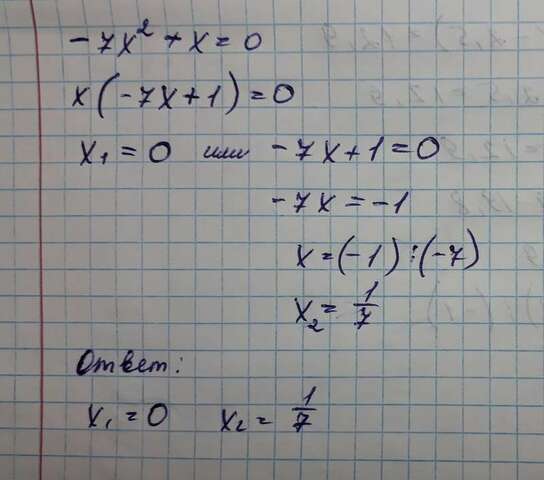 -7x² + x = 0
x(-7x+1)=0
x₁ = 0 или -7x+1=0
-7x = -1
x=(-1):(-7)
x₂ = 1/7
Ответ:
x₁ = 0 x₂ = 1/7